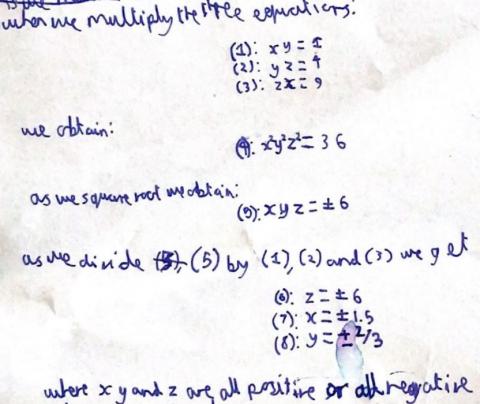 when we multiply the three equations:
(1): xy = 1
(2): yz = 4
(3): zx = 9
we obtain:
(4): x²y²z² = 36
as we square root we obtain:
(5): xyz = ± 6
as we divide (5) by (1), (2) and (3) we get
(6): z = ± 6
(7): x = ± 1.5
(8): y = ± 2/3
where x y and z are all positive or all negative